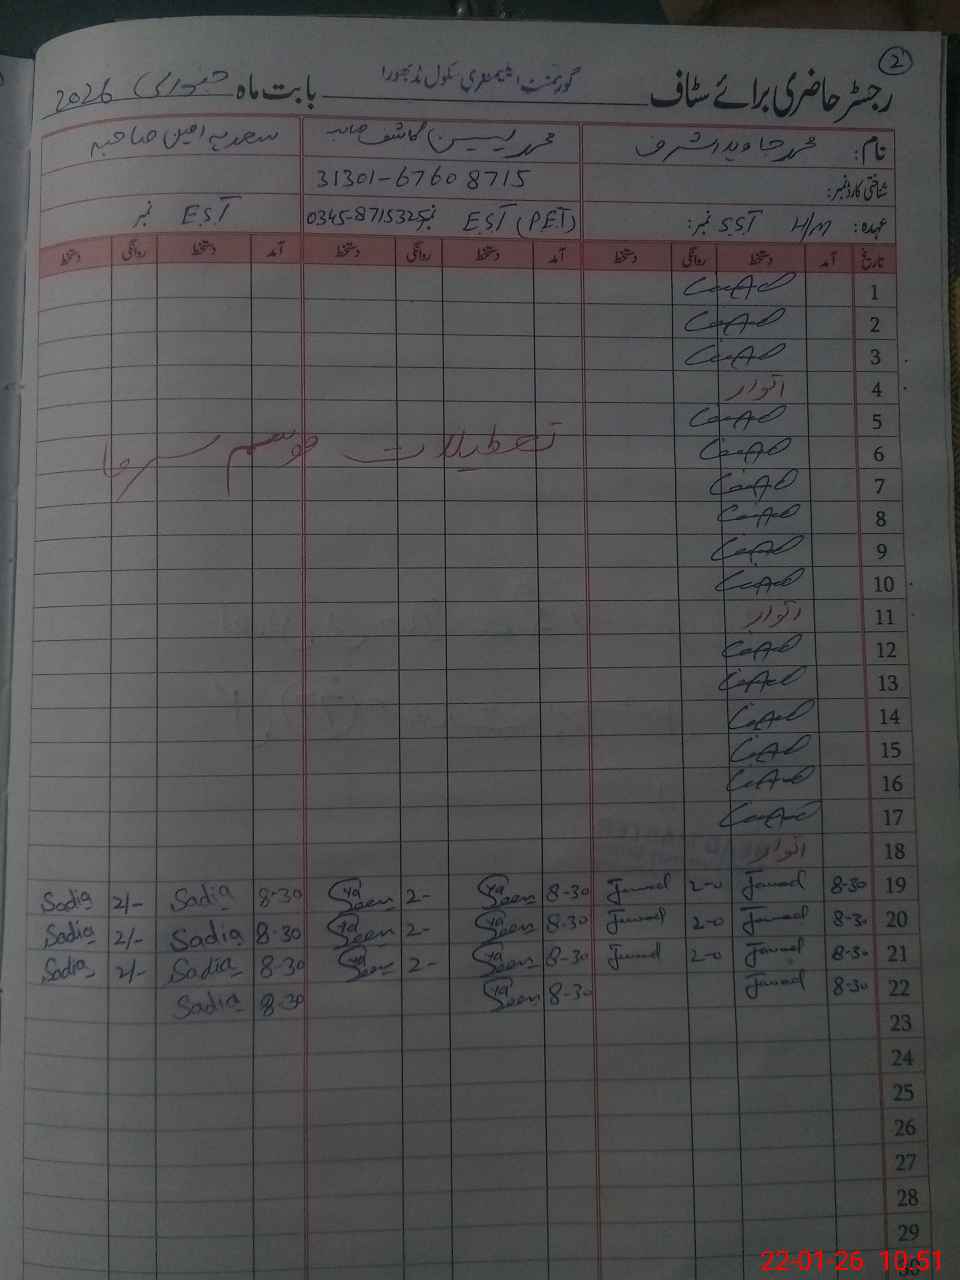 2
رجسٹر حاضری برائے سٹاف گورنمنٹ ایلیمنٹری سکول بابت ماہ جنوری 2026
نام: محمد جاوید اشرف محمد یسین کاشف صاحب سعدیہ امین صاحبہ
شناختی کارڈ نمبر: 31301-67608715
عہدہ: H/M SST نمبر: EST (PET) نمبر 0345-8715325 EST نمبر
تاریخ آمد دستخط روانگی دستخط آمد دستخط روانگی دستخط آمد دستخط روانگی دستخط
1
2
3
4 اتوار
5
6
تعطیلات موسم سرما
7
8
9
10
11 اتوار
12
13
14
15
16
17
18 اتوار
19 8-30 Jawad 2-0 Jawad 8-30 Yaseen 2- Yaseen 8-30 Sadia 2/- Sadia
20 8-30 Jawad 2-0 Jawad 8-30 Yaseen 2- Yaseen 8-30 Sadia 2/- Sadia
21 8-30 Jawad 2-0 Jawad 8-30 Yaseen 2- Yaseen 8-30 Sadia 2/- Sadia
22 8-30 Jawad 8-30 Yaseen 8-30 Sadia
23
24
25
26
27
28
29
30
22-01-26 10:51